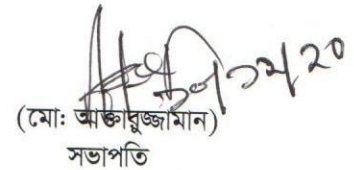 (মো: আক্তারুজ্জামান)
সভাপতি